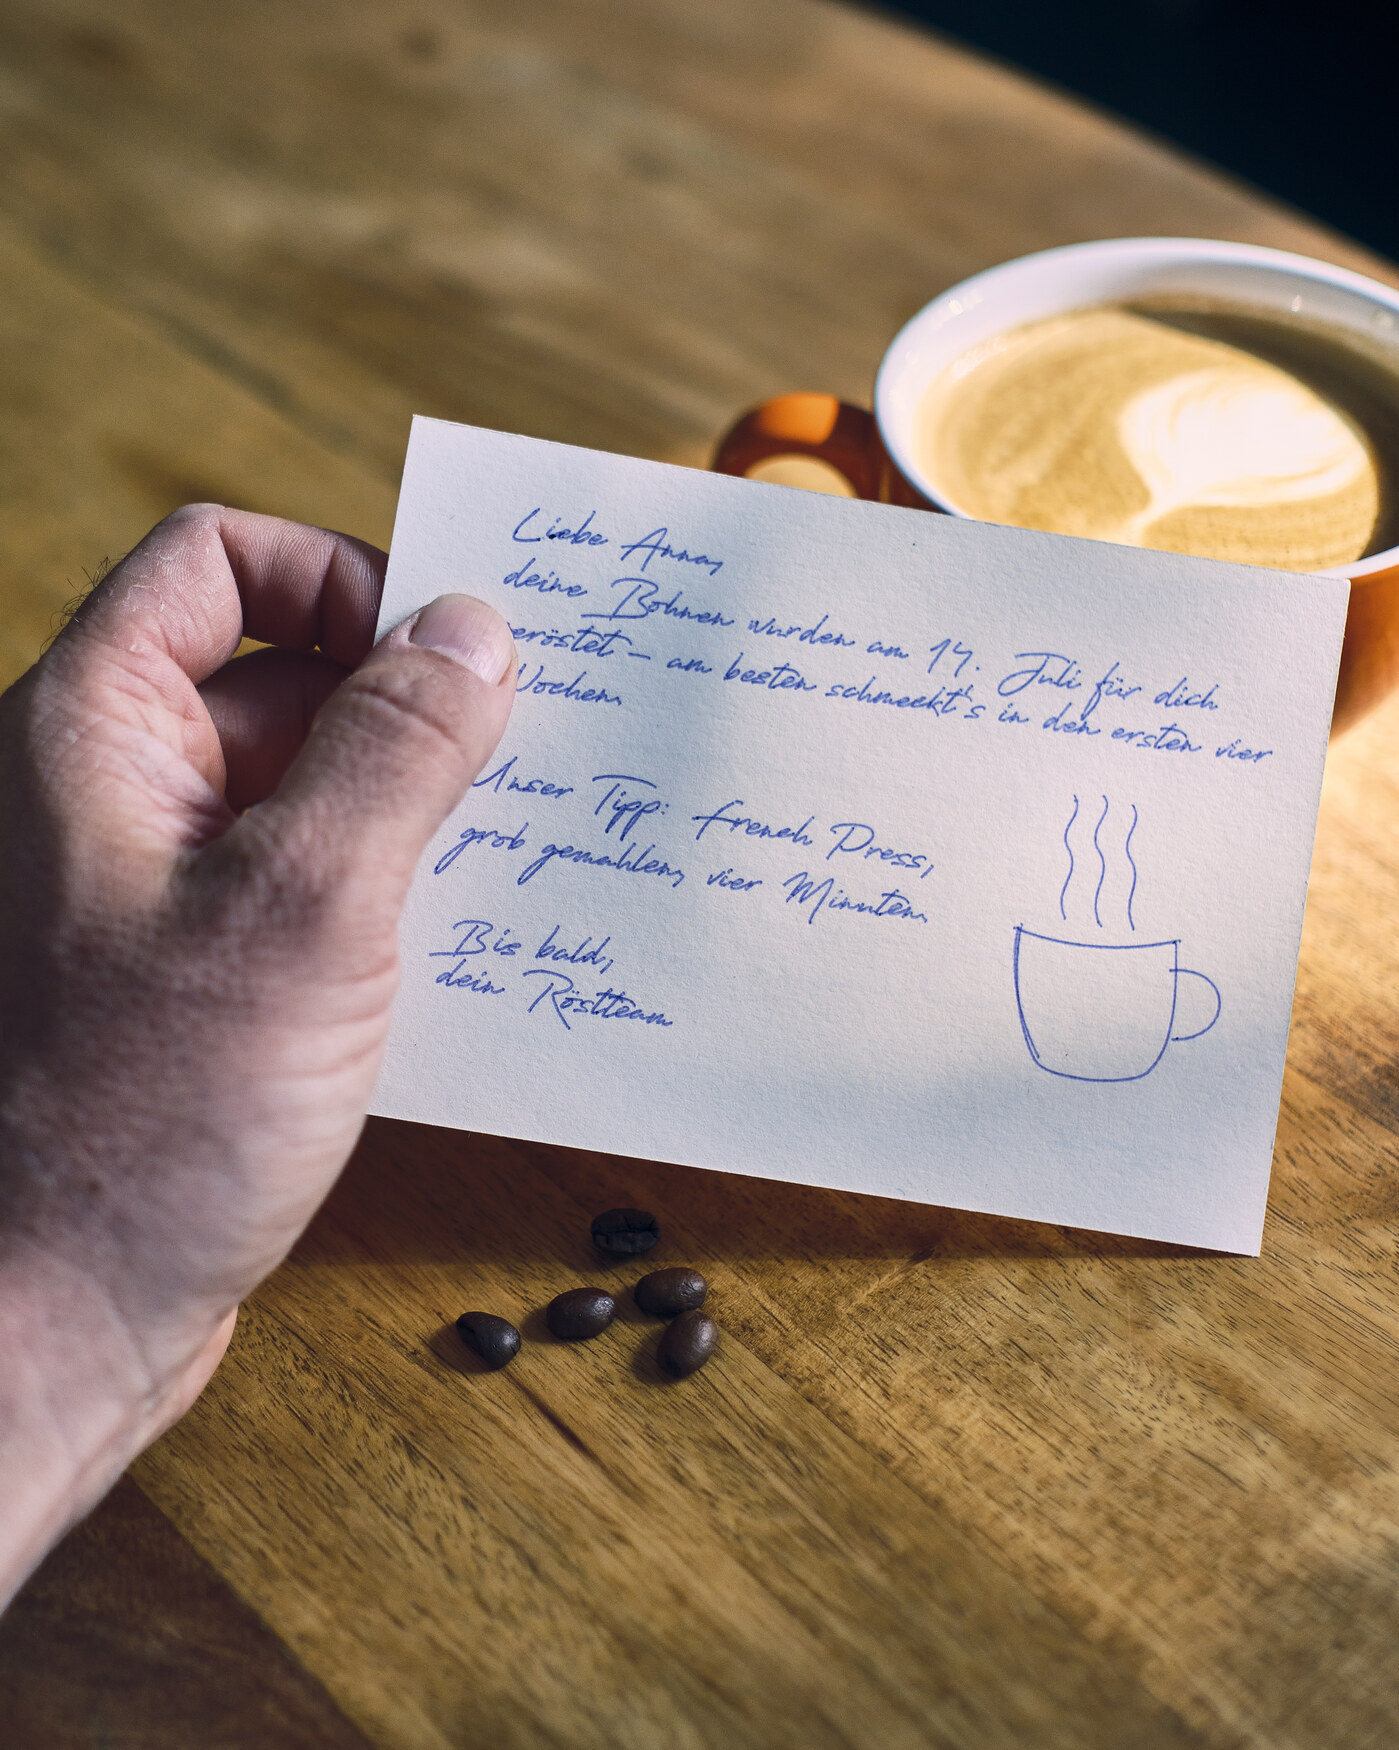 Liebe Anna,
deine Bohnen wurden am 14. Juli für dich
geröstet – am besten schmeckt's in den ersten vier
Wochen.
Unser Tipp: French Press,
grob gemahlen, vier Minuten.
Bis bald,
dein Röstteam